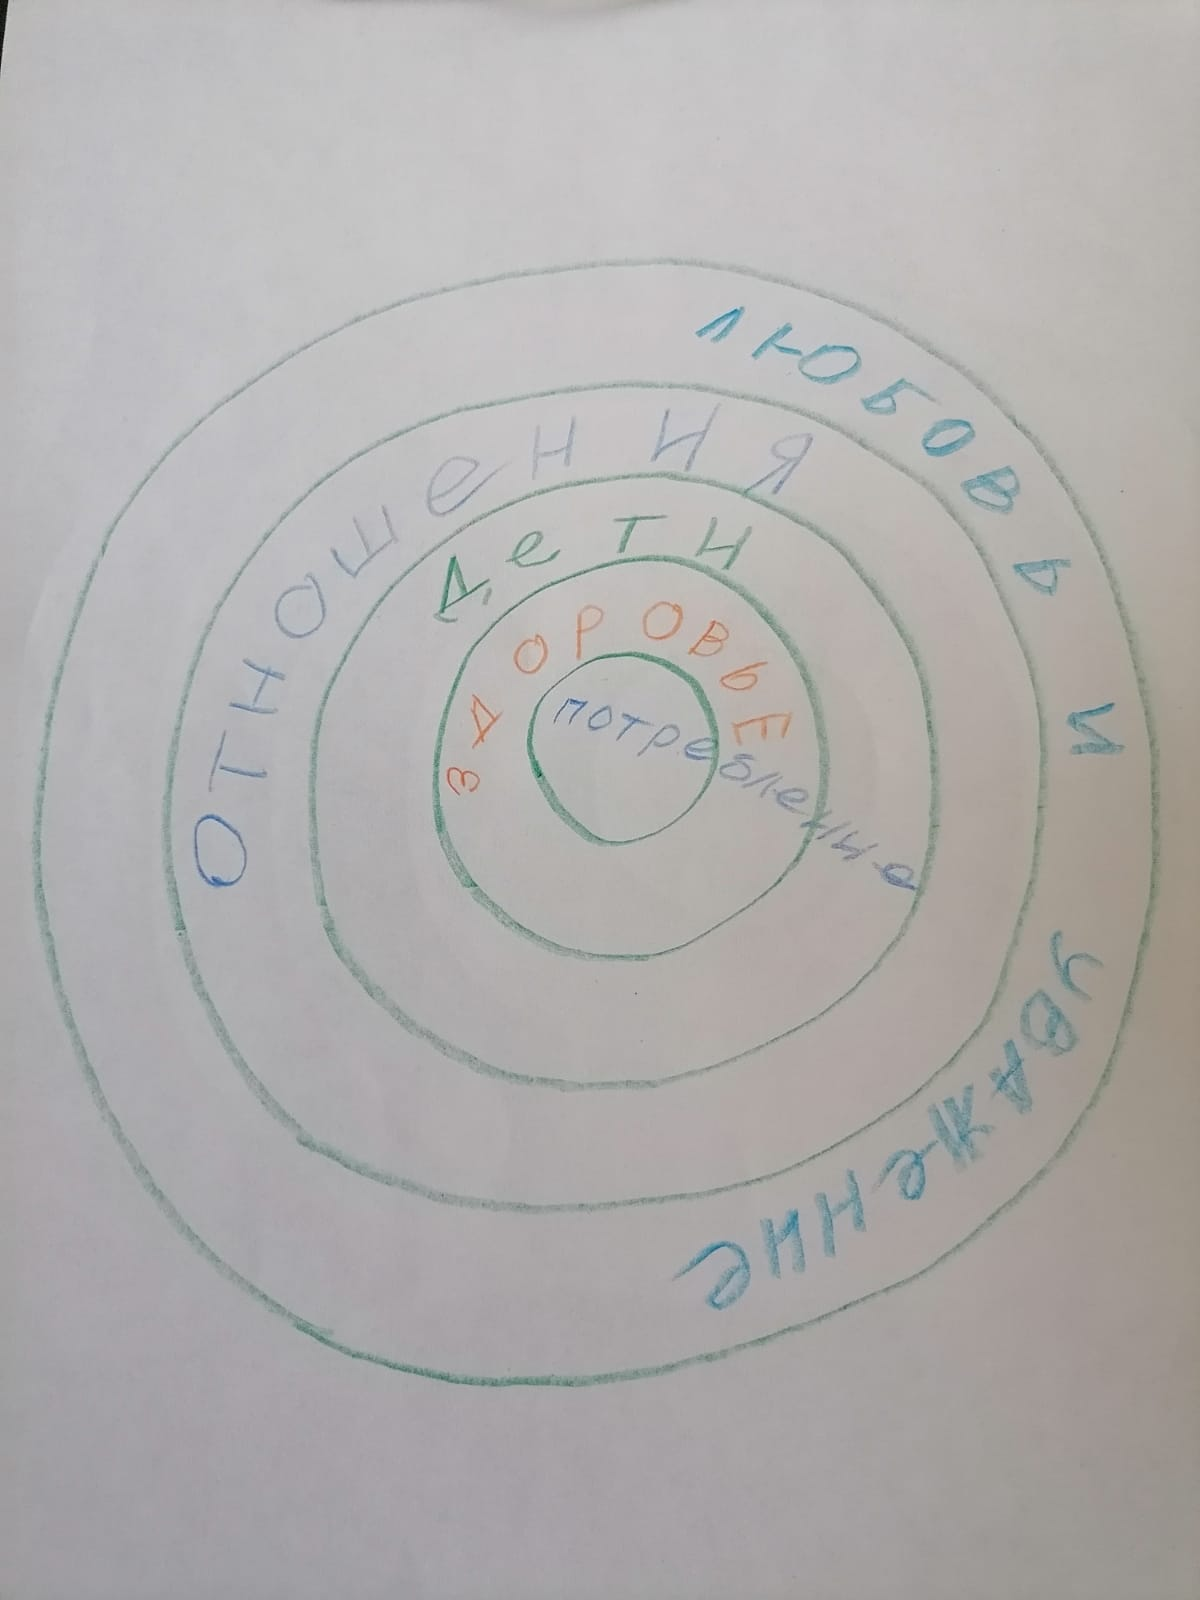 ЛЮБОВЬ И УВАЖЕНИЕ
ОТНОШЕНИЯ
ДЕТИ
ЗДОРОВЬЕ
потребление